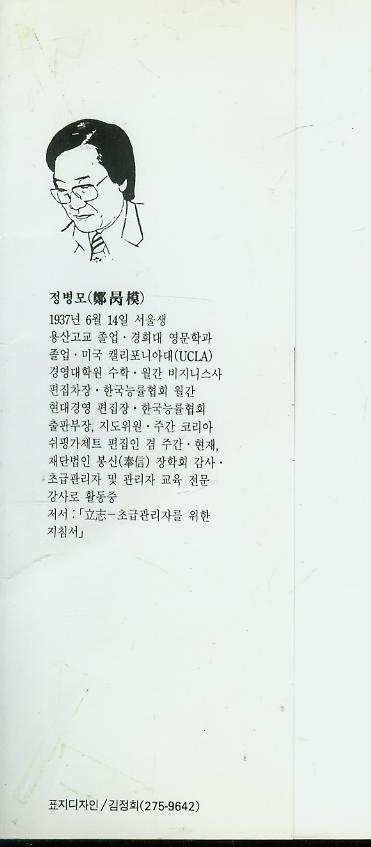 정병모(鄭昺模)
1937년 6월 14일 서울생
용산고교 졸업·경희대 영문학과
졸업·미국 캘리포니아대(UCLA)
경영대학원 수학·월간 비지니스사
편집차장·한국능률협회 월간
현대경영 편집장·한국능률협회
출판부장, 지도위원·주간 코리아
쉬핑가제트 편집인 겸 주간·현재,
재단법인 봉신(奉信) 장학회 감사·
초급관리자 및 관리자 교육 전문
강사로 활동중
저서:「立志-초급관리자를 위한
지침서」
표지디자인/김정회(275-9642)